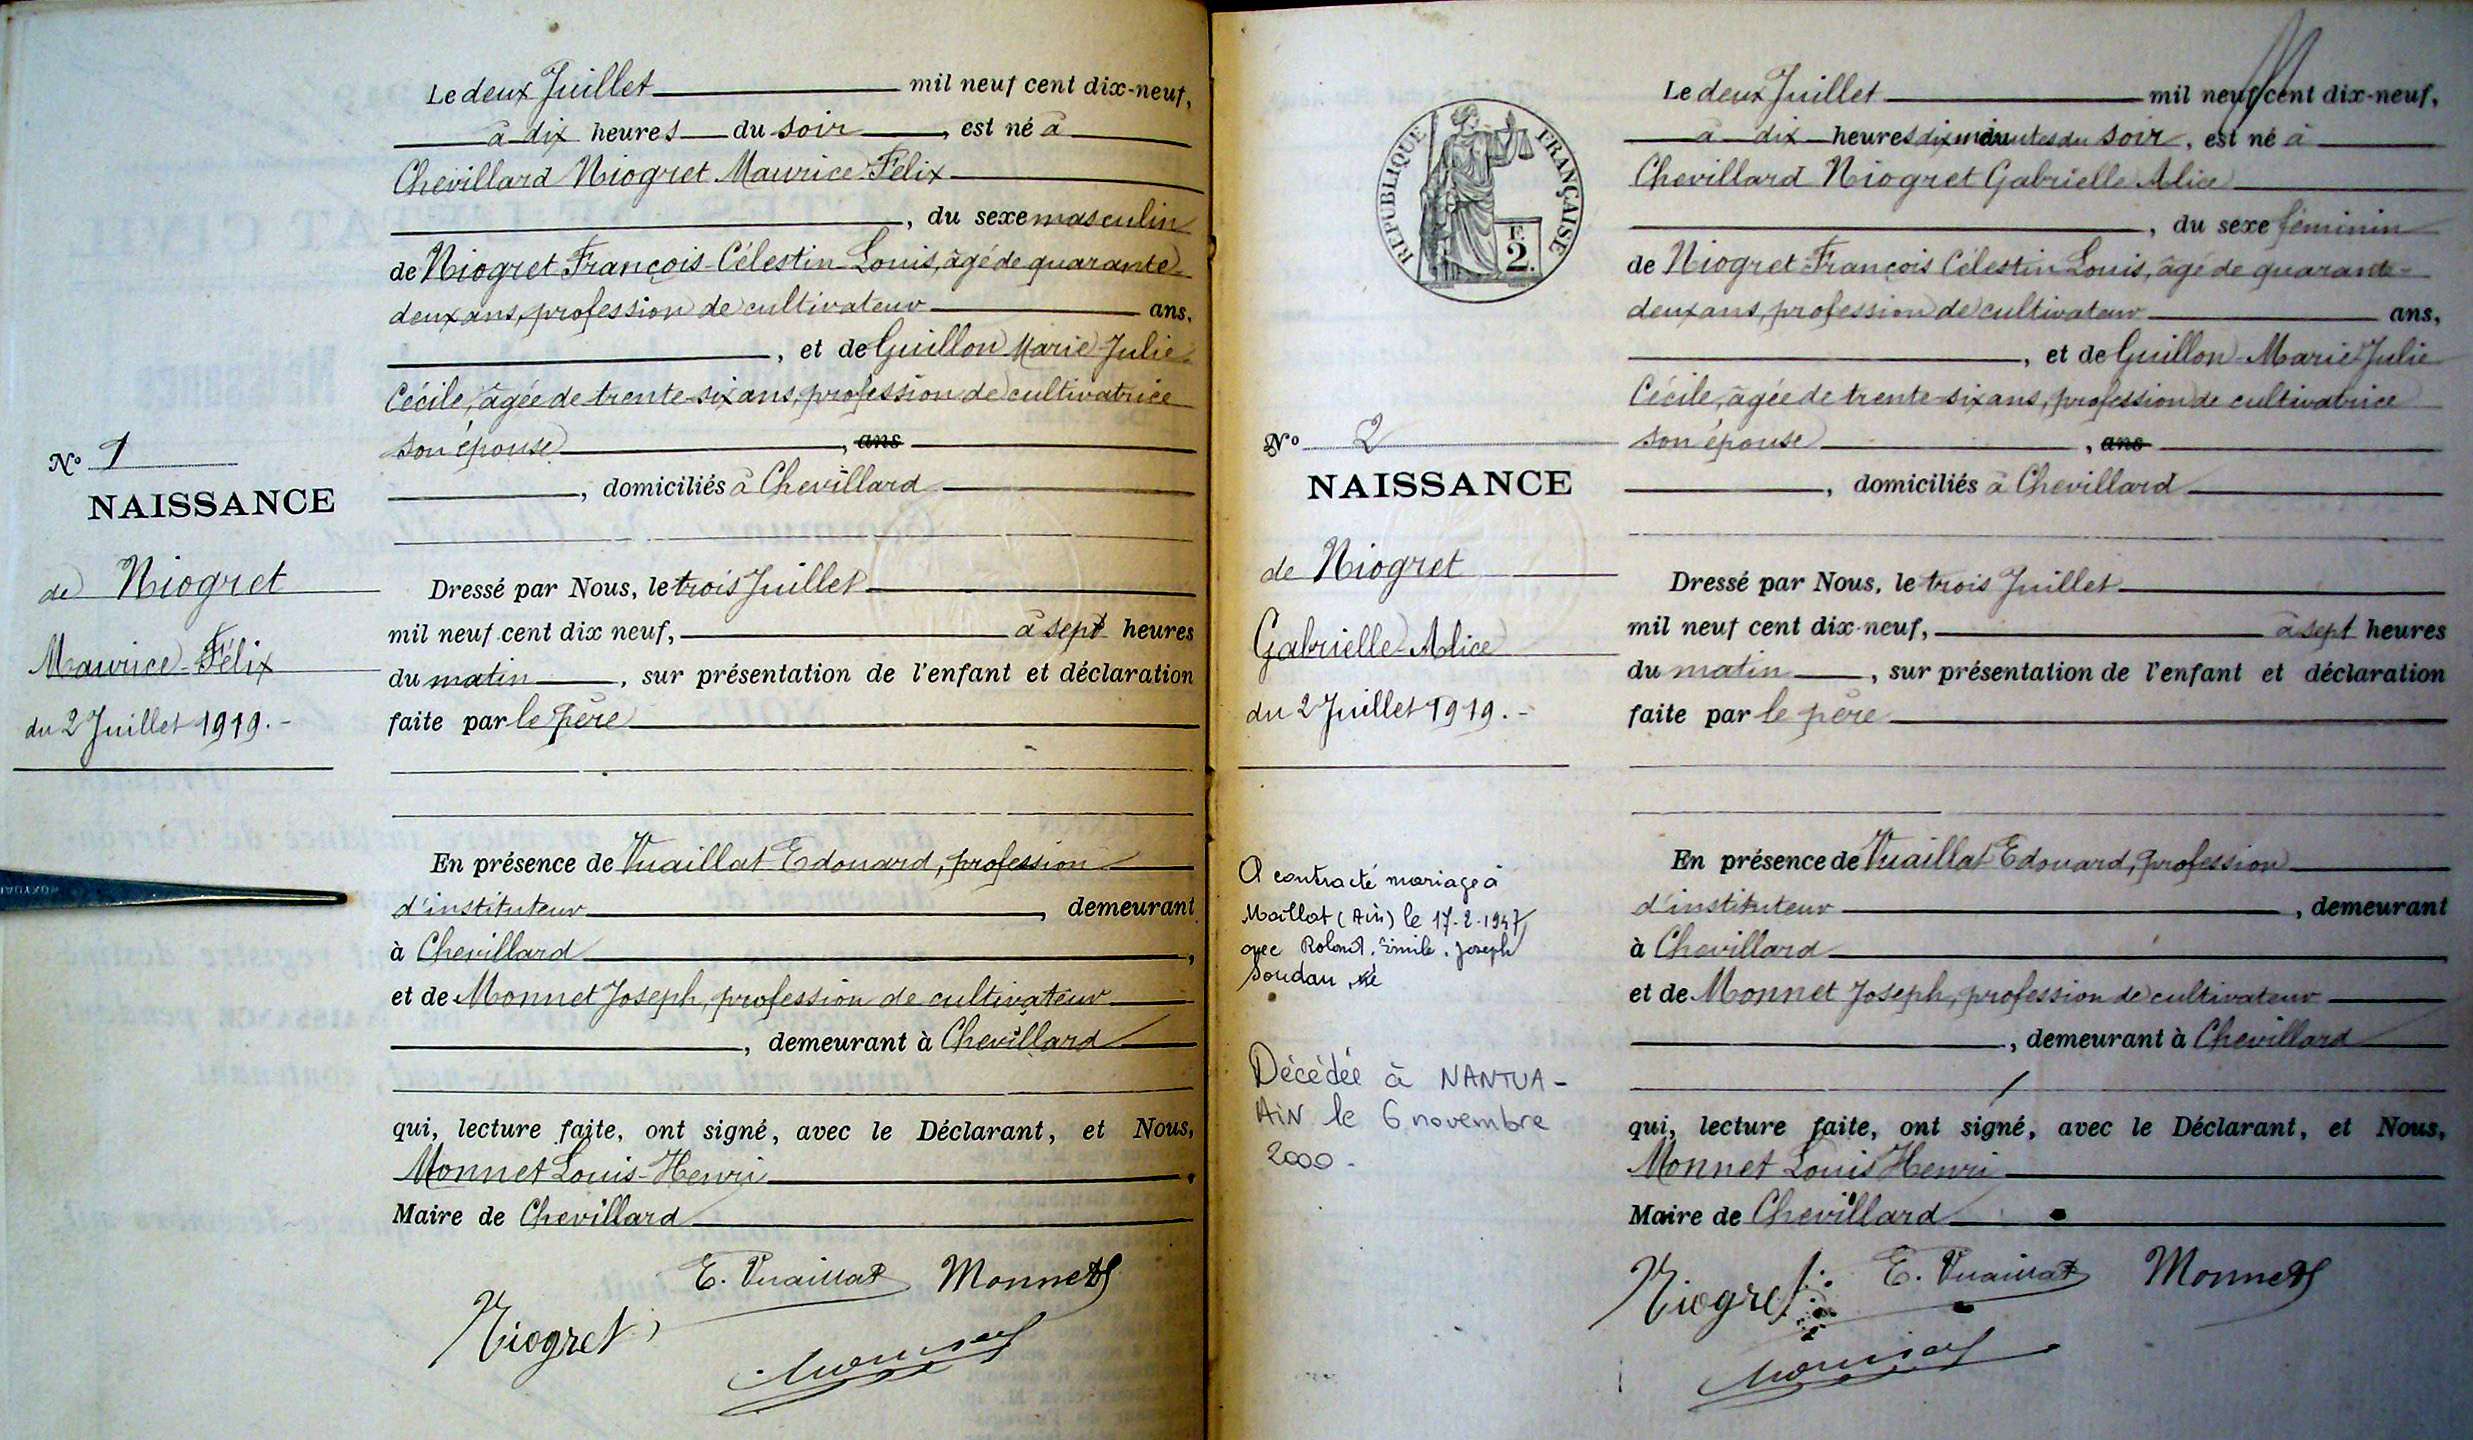 Le deux Juillet mil neuf cent dix-neuf,
à dix heures du soir, est né à
Chevillard Niogret Maurice Félix
, du sexe masculin
de Niogret François-Célestin-Louis, âgé de quarante-
deux ans, profession de cultivateur ans,
, et de Guillon Marie-Julie
Cécile, âgée de trente-six ans, profession de cultivatrice
son épouse, ans
, domiciliés à Chevillard
N° 1
NAISSANCE
de Niogret
Maurice-Félix
du 2 Juillet 1919.-
Dressé par Nous, le trois Juillet
mil neuf cent dix neuf, à sept heures
du matin, sur présentation de l'enfant et déclaration
faite par le père
En présence de Vuaillat Edouard, profession
d'instituteur, demeurant
à Chevillard,
et de Monnet Joseph, profession de cultivateur
, demeurant à Chevillard
qui, lecture faite, ont signé, avec le Déclarant, et Nous,
Monnet Louis-Henri.
Maire de Chevillard
E. Vuaillat Monnet
Niogret
RÉPUBLIQUE FRANÇAISE
F.
2.
Le deux Juillet mil neuf cent dix-neuf,
à dix heures dix minutes du soir, est né à
Chevillard Niogret Gabrielle Alice
, du sexe féminin
de Niogret François Célestin Louis, âgé de quarante-
deux ans, profession de cultivateur ans,
, et de Guillon-Marie-Julie
Cécile, âgée de trente-six ans, profession de cultivatrice
son épouse, ans
, domiciliés à Chevillard
N° 2
NAISSANCE
de Niogret
Gabrielle-Alice
du 2 Juillet 1919.-
Dressé par Nous, le trois Juillet
mil neuf cent dix-neuf, à sept heures
du matin, sur présentation de l'enfant et déclaration
faite par le père
En présence de Vuaillat Edouard, profession
d'instituteur, demeurant
à Chevillard,
et de Monnet Joseph, profession de cultivateur
, demeurant à Chevillard
qui, lecture faite, ont signé, avec le Déclarant, et Nous,
Monnet Louis Henri
Maire de Chevillard
A contracté mariage à
Maillat (Ain) le 17-2-1947
avec Roland. Emile. Joseph
Soudan
Décédée à NANTUA-
AIN le 6 novembre
2000-
Niogret E. Vuaillat Monnet